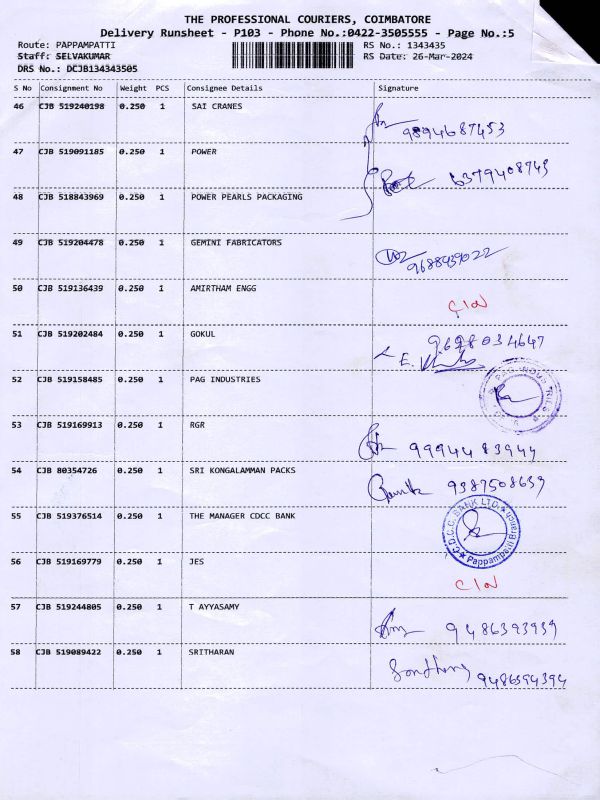 THE PROFESSIONAL COURIERS, COIMBATORE
Delivery Runsheet - P103 - Phone No.:0422-3505555 - Page No.:5
Route: PAPPAMPATTI RS No.: 1343435
Staff: SELVAKUMAR RS Date: 26-Mar-2024
DRS No.: DCJB134343505
S No Consignment No Weight PCS Consignee Details Signature
46 CJB 519240198 0.250 1 SAI CRANES
9894687453
47 CJB 519091185 0.250 1 POWER
6379408743
48 CJB 518843969 0.250 1 POWER PEARLS PACKAGING
49 CJB 519204478 0.250 1 GEMINI FABRICATORS
9688439022
50 CJB 519136439 0.250 1 AMIRTHAM ENGG
51 CJB 519202484 0.250 1 GOKUL
9698034647
52 CJB 519158485 0.250 1 PAG INDUSTRIES
53 CJB 519169913 0.250 1 RGR 9994483944
54 CJB 80354726 0.250 1 SRI KONGALAMMAN PACKS 9387508639
55 CJB 519376514 0.250 1 THE MANAGER CDCC BANK
C.D.C.C. BANK LTD.
Pappampatti Branch
56 CJB 519169779 0.250 1 JES
57 CJB 519244805 0.250 1 T AYYASAMY
9486393939
58 CJB 519089422 0.250 1 SRITHARAN
9486394394